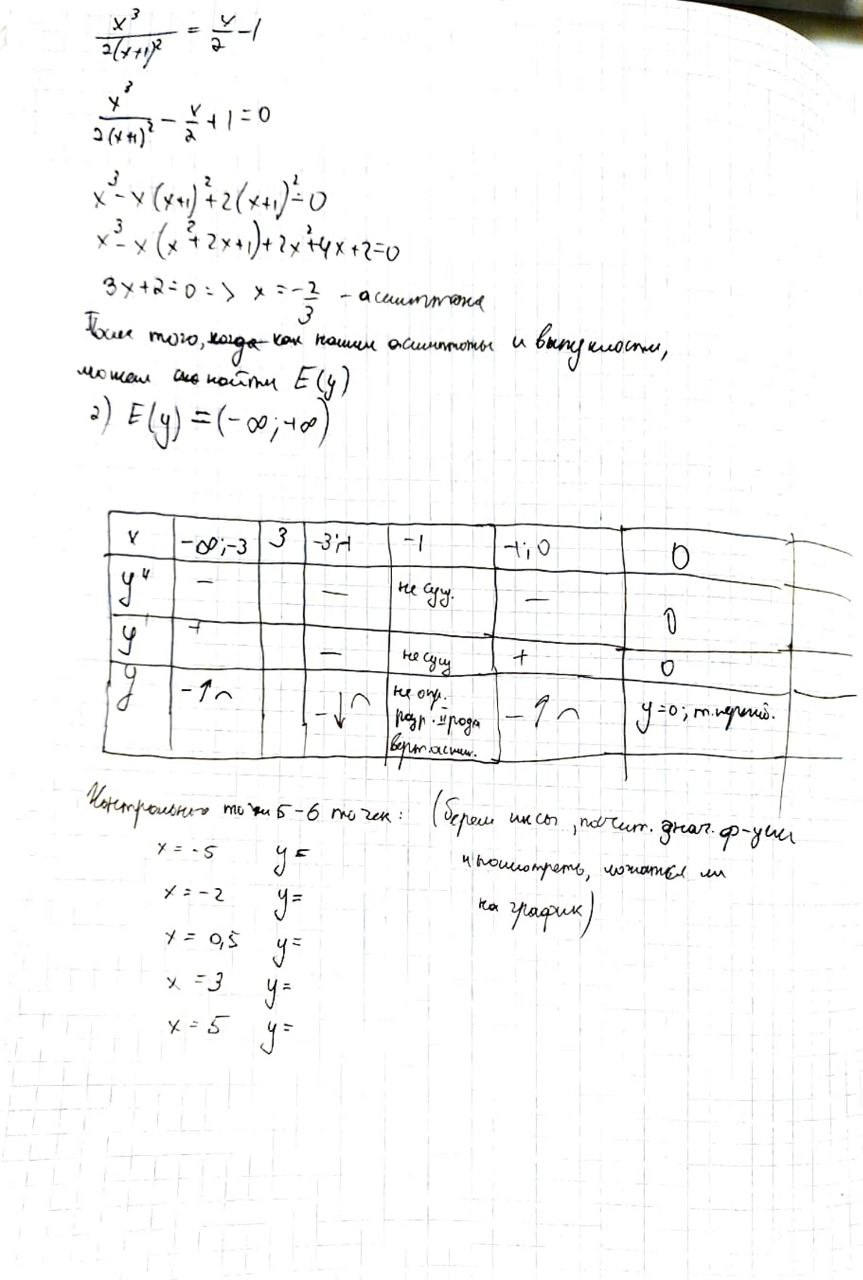 x³/(2(x+1)²) = x/2 - 1
x³/(2(x+1)²) - x/2 + 1 = 0
x³ - x(x+1)² + 2(x+1)² = 0
x³ - x(x² + 2x+1) + 2x² + 4x + 2 = 0
3x + 2 = 0 => x = -2/3 - асимптота
После того, когда как нашли асимптоты и выпуклости,
можем найти E(y)
2) E(y) = (-∞; +∞)
x -∞;-3 3 -3;-1 -1 -1; 0 0
y'' - — не сущ. — 0
y' + — не сущ + 0
y - ↑ ⌒ - ↓ ⌒ не опр. разр. II рода верт. асим. - ↑ ⌒ y = 0; т. перегиб.
Контрольные точки 5-6 точек: (берем иксы, посчит. знач. ф-ции
x = -5 y = и посмотреть, ложатся ли
x = -2 y = на график)
x = 0,5 y =
x = 3 y =
x = 5 y =